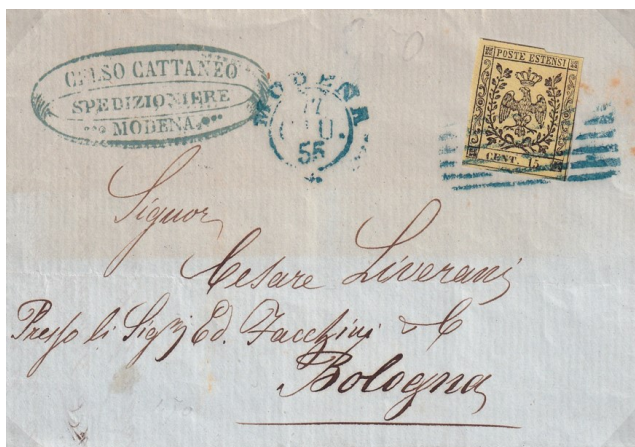 CELSO CATTANEO
SPEDIZIONIERE
MODENA
MODENA
GIU.
55
POSTE ESTENSI
CENT. 15
Signor
Cesare Liverani
Presso li Sigri Ed. Facchini & C
Bologna